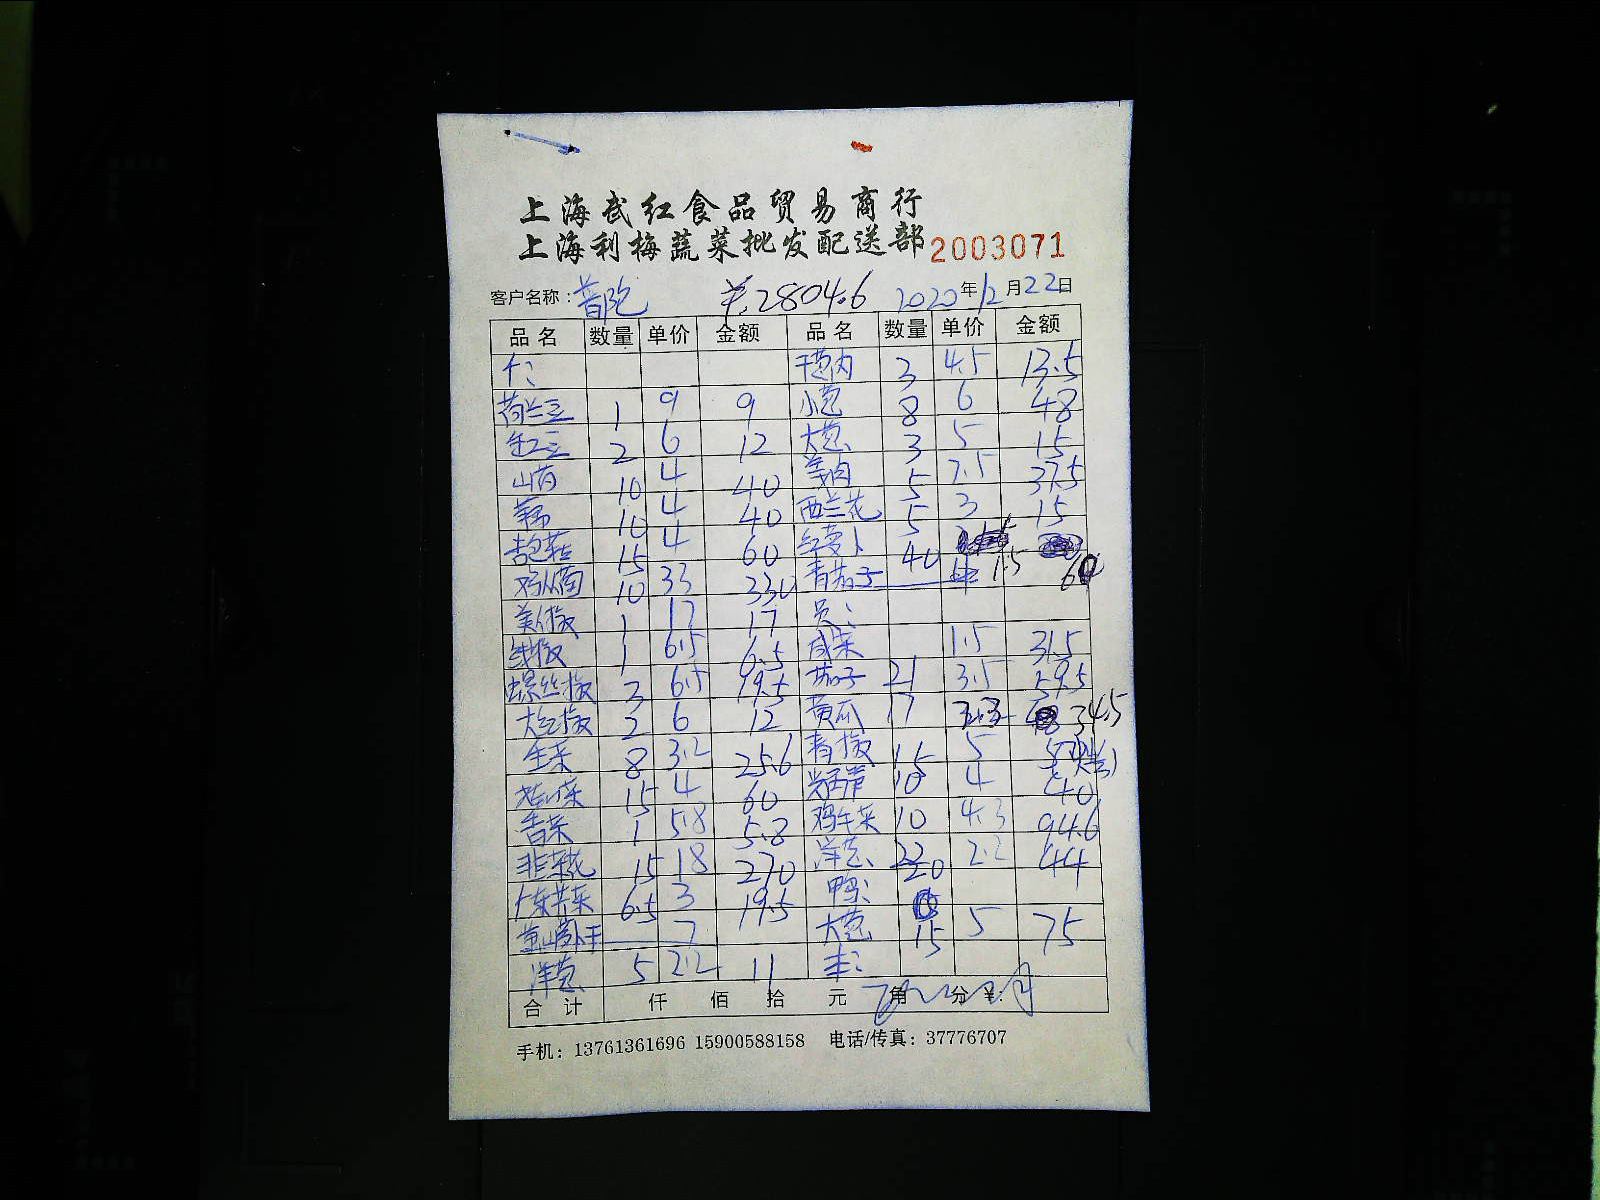 上海武红食品贸易商行
上海利梅蔬菜批发配送部 2003071
客户名称： ¥:2804.6 2020年12月22日
品名 数量 单价 金额 品名 数量 单价 金额
干葱肉 3 4.5 13.5
荷兰豆 1 9 9 小葱 8 6 48
2 6 12 大葱 3 5 15
山药 10 4 40 姜肉 5 7.5 37.5
10 4 40 西兰花 5 3 15
15 4 60 红萝卜 40
10 33 330 青茄子 1.5 60
美人椒 1 17 17
线椒 1 6.5 6.5 咸菜 1.5 31.5
螺丝椒 3 6.5 19.5 茄子 21 3.5 59.5
大红椒 2 6 12 黄瓜 17 34.5
生菜 8 3.2 25.6 青椒 15 5
15 4 60 10 4 40
香菜 1 5.8 5.8 鸡毛菜 10 4.3 94.6
韭菜花 15 18 270 洋葱 22 20 2.2 44
6.5 3 19.5 鸭:
7 大葱 15 5 75
洋葱 5 2.2 11
合计 仟 佰 拾 元 角 分 ¥:
手机：13761361696 15900588158 电话/传真：37776707